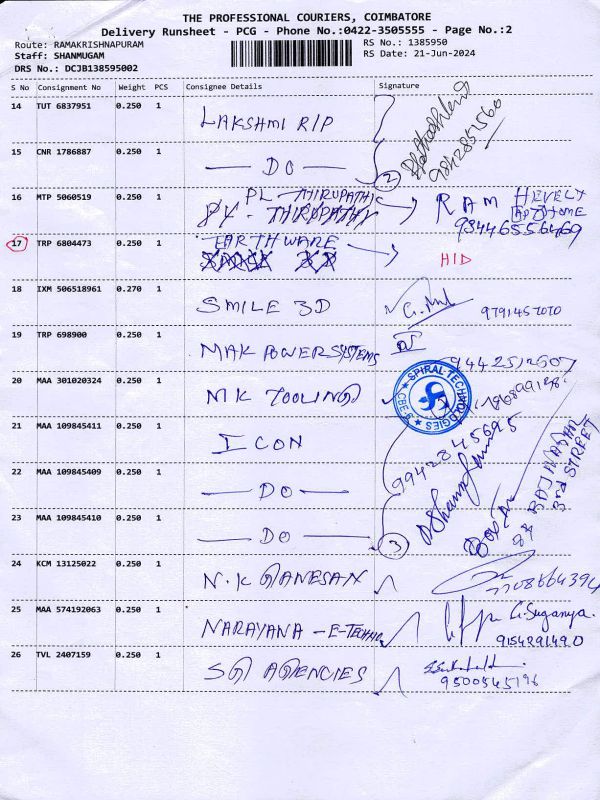 THE PROFESSIONAL COURIERS, COIMBATORE
Delivery Runsheet - PCG - Phone No.:0422-3505555 - Page No.:2
Route: RAMAKRISHNAPURAM
RS No.: 1385950
Staff: SHANMUGAM
RS Date: 21-Jun-2024
DRS No.: DCJB138595002
S No Consignment No Weight PCS Consignee Details Signature
14 TUT 6837951 0.250 1 LAKSHMI RIP
15 CNR 1786887 0.250 1 — DO — 2
16 MTP 5060519 0.250 1 PL - THIRUPATHI RAM
93446556469
17 TRP 6804473 0.250 1 EARTHWARE HID
18 IXM 506518961 0.270 1 SMILE 3D
19 TRP 698900 0.250 1 MAK POWER SYSTEMS
20 MAA 301020324 0.250 1 MK TOOLING
SPIRAL TECHNOLOGIES
CBE-6
21 MAA 109845411 0.250 1 ICON 9942845695
22 MAA 109845409 0.250 1 — DO —
RAJ NAGAR
3rd STREET
23 MAA 109845410 0.250 1 — DO — 3
24 KCM 13125022 0.250 1 N.K GANESAN
25 MAA 574192063 0.250 1 NARAYANA - E-TECHNO G.Suganya.
9154291490
26 TVL 2407159 0.250 1 SG AGENCIES
9500545196